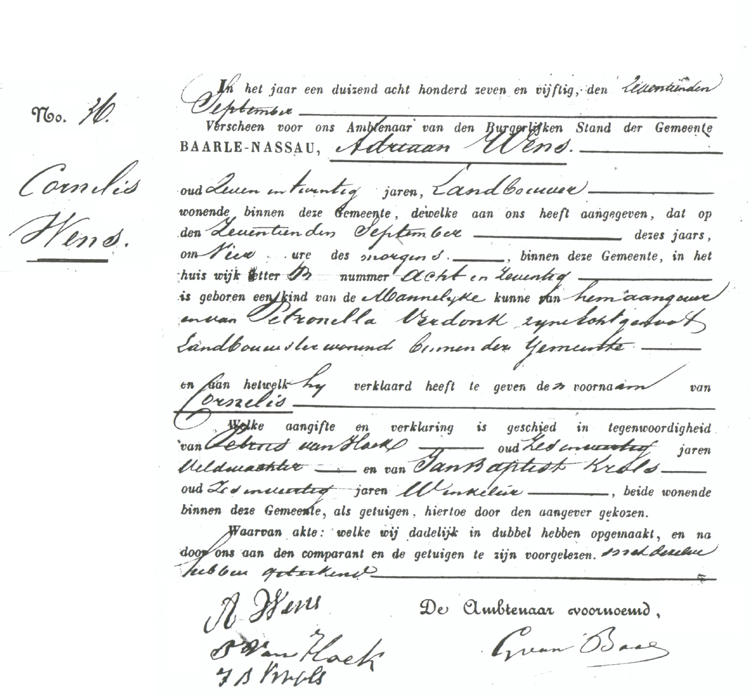 No. 36.
Cornelis
Wens.
In het jaar een duizend acht honderd zeven en vijftig, den Zeventienden
September
Verscheen voor ons Ambtenaar van den Burgerlijken Stand der Gemeente
BAARLE-NASSAU, Adriaan Wens.
oud Zeven en twintig jaren, Landbouwer
wonende binnen deze Gemeente, dewelke aan ons heeft aangegeven, dat op
den Zeventienden September dezes jaars,
om Vier ure des morgens, binnen deze Gemeente, in het
huis wijk letter B nummer Acht en Zeventig
is geboren een kind van de Mannelyke kunne van hem aangever
en van Petronella Verdonk zyne Echtgenoot
Landbouwster wonend binnen der Gemeente
en aan hetwelk hy verklaard heeft te geven den voornaam van
Cornelis
Welke aangifte en verklaring is geschied in tegenwoordigheid
van Petrus van Hoek oud Zesenveertig jaren
Veldwachter en van Jan Baptist Krols
oud Zesenveertig jaren Winkelier, beide wonende
binnen deze Gemeente, als getuigen, hiertoe door den aangever gekozen.
Waarvan akte: welke wij dadelijk in dubbel hebben opgemaakt, en na
door ons aan den comparant en de getuigen te zijn voorgelezen. met dezelve
hebben geteekend
A Wens
De Ambtenaar voornoemd,
P Van Hoek
G van Baal
J B Krols